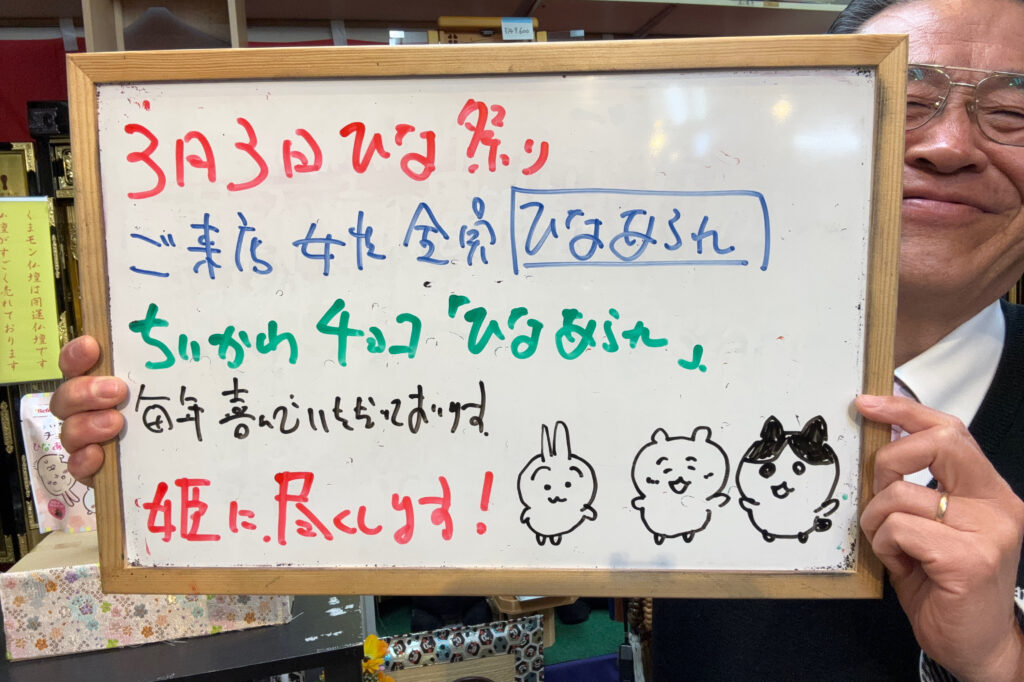 3月3日ひな祭り
ご来店 女性全員 ひなあられ
ちいかわ チョコ「ひなあられ」
毎年喜んでいただいております
姫に尽くします!
くまモン仏壇は開運仏壇です
仏壇がすごく売れております